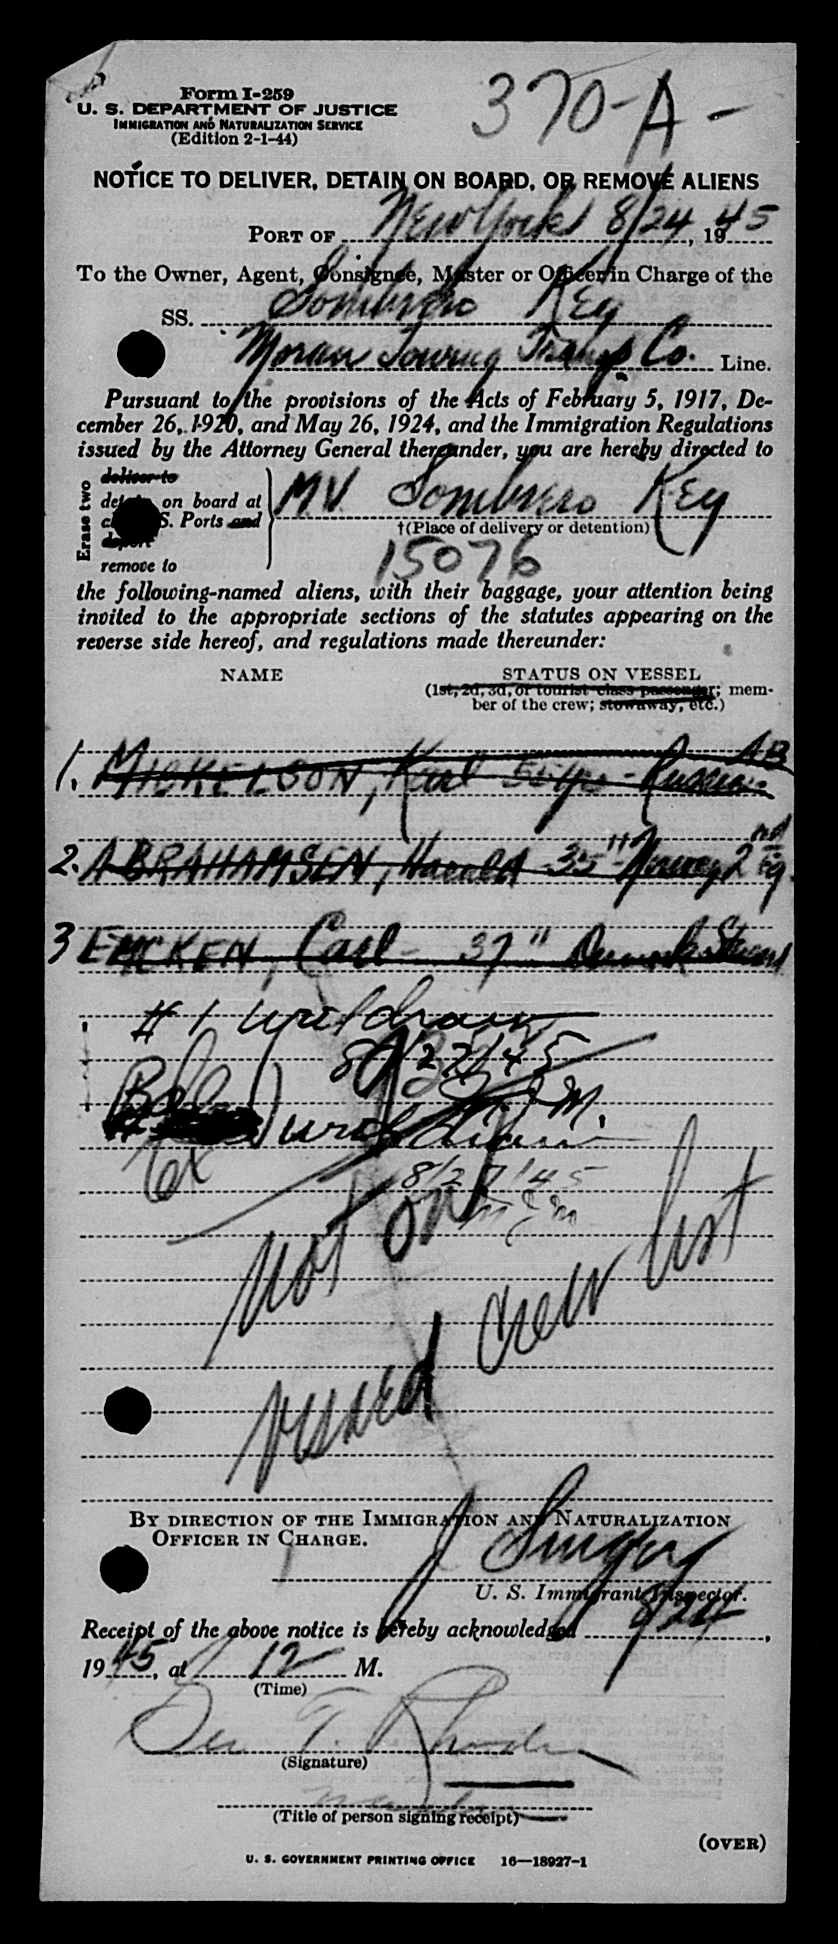 Form I-259
370-A-
U. S. DEPARTMENT OF JUSTICE
IMMIGRATION AND NATURALIZATION SERVICE
(Edition 2-1-44)
NOTICE TO DELIVER, DETAIN ON BOARD, OR REMOVE ALIENS
PORT OF New York 8/24, 1945
To the Owner, Agent, Consignee, Master or Officer in Charge of the
SS. Sombrero Key
Moran Towing Transp Co. Line.
Pursuant to the provisions of the Acts of February 5, 1917, De-
cember 26, 1920, and May 26, 1924, and the Immigration Regulations
issued by the Attorney General thereunder, you are hereby directed to
Erase two
deliver to
detain on board at
S. Ports and
deport
remove to
MV Sombrero Key
†(Place of delivery or detention)
15076
the following-named aliens, with their baggage, your attention being
invited to the appropriate sections of the statutes appearing on the
reverse side hereof, and regulations made thereunder:
NAME STATUS ON VESSEL
(1st, 2d, 3d, or tourist class passenger; mem-
ber of the crew; stowaway, etc.)
1. MICKELSON, Karl 55 yrs - Russia AB
2. ABRAHAMSEN, Harald 35 " Norway 2nd
3 EMCKEN, Carl - 37 " Denmark
# 1 withdrawn
8/27/45
withdrawn
8/27/45
not on
vised crew list
BY DIRECTION OF THE IMMIGRATION AND NATURALIZATION
OFFICER IN CHARGE.
J Singer
U. S. Immigrant Inspector.
Receipt of the above notice is hereby acknowledged 8/24,
1945, at 12 M.
(Time)
Geo T. Rhodes
(Signature)
(Title of person signing receipt)
(OVER)
U. S. GOVERNMENT PRINTING OFFICE 16—18927-1